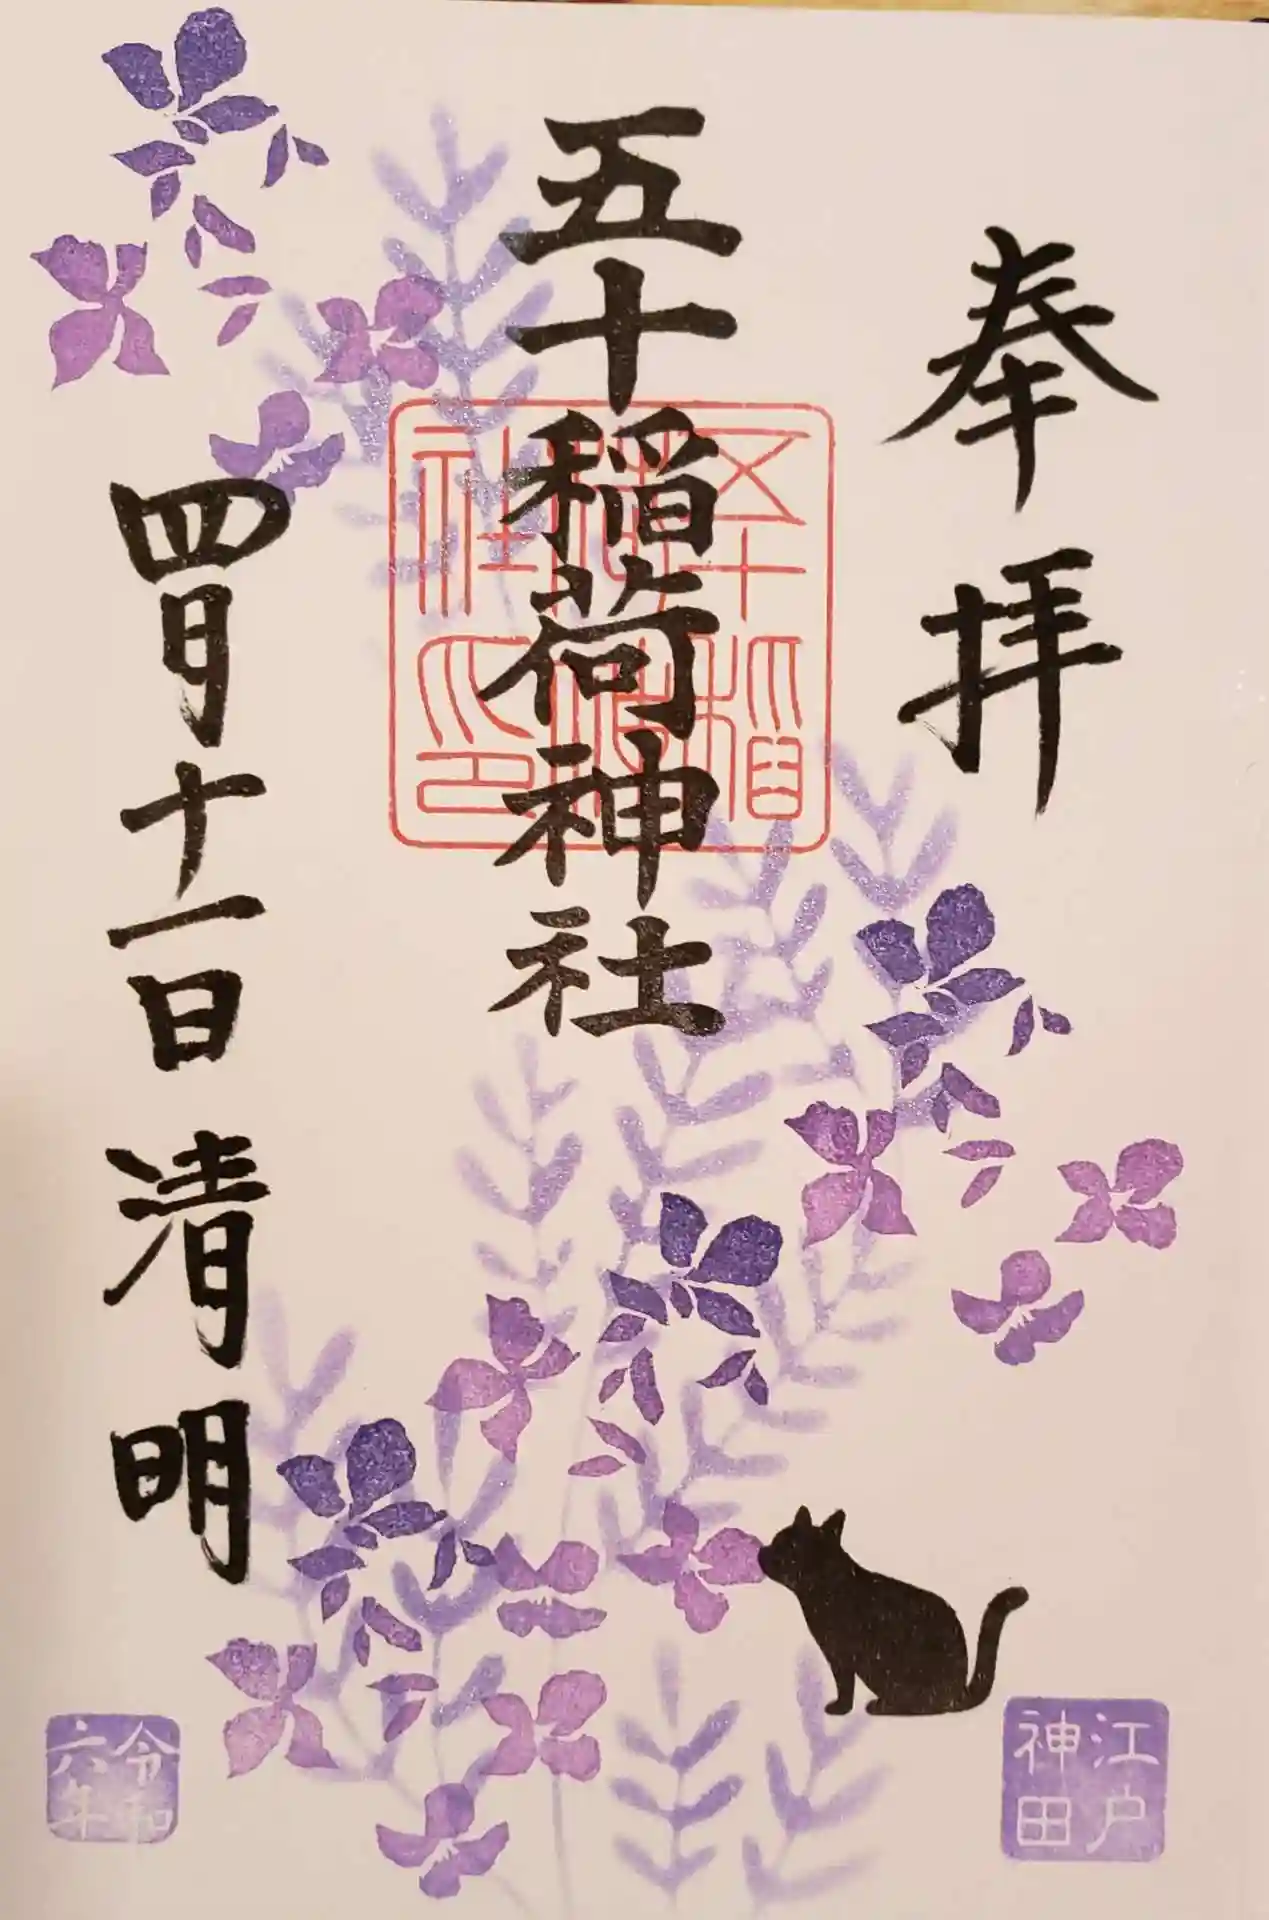 奉拝
五十稲荷神社
五十稲荷神社印
四月十一日清明
江戸
神田
令和
六年